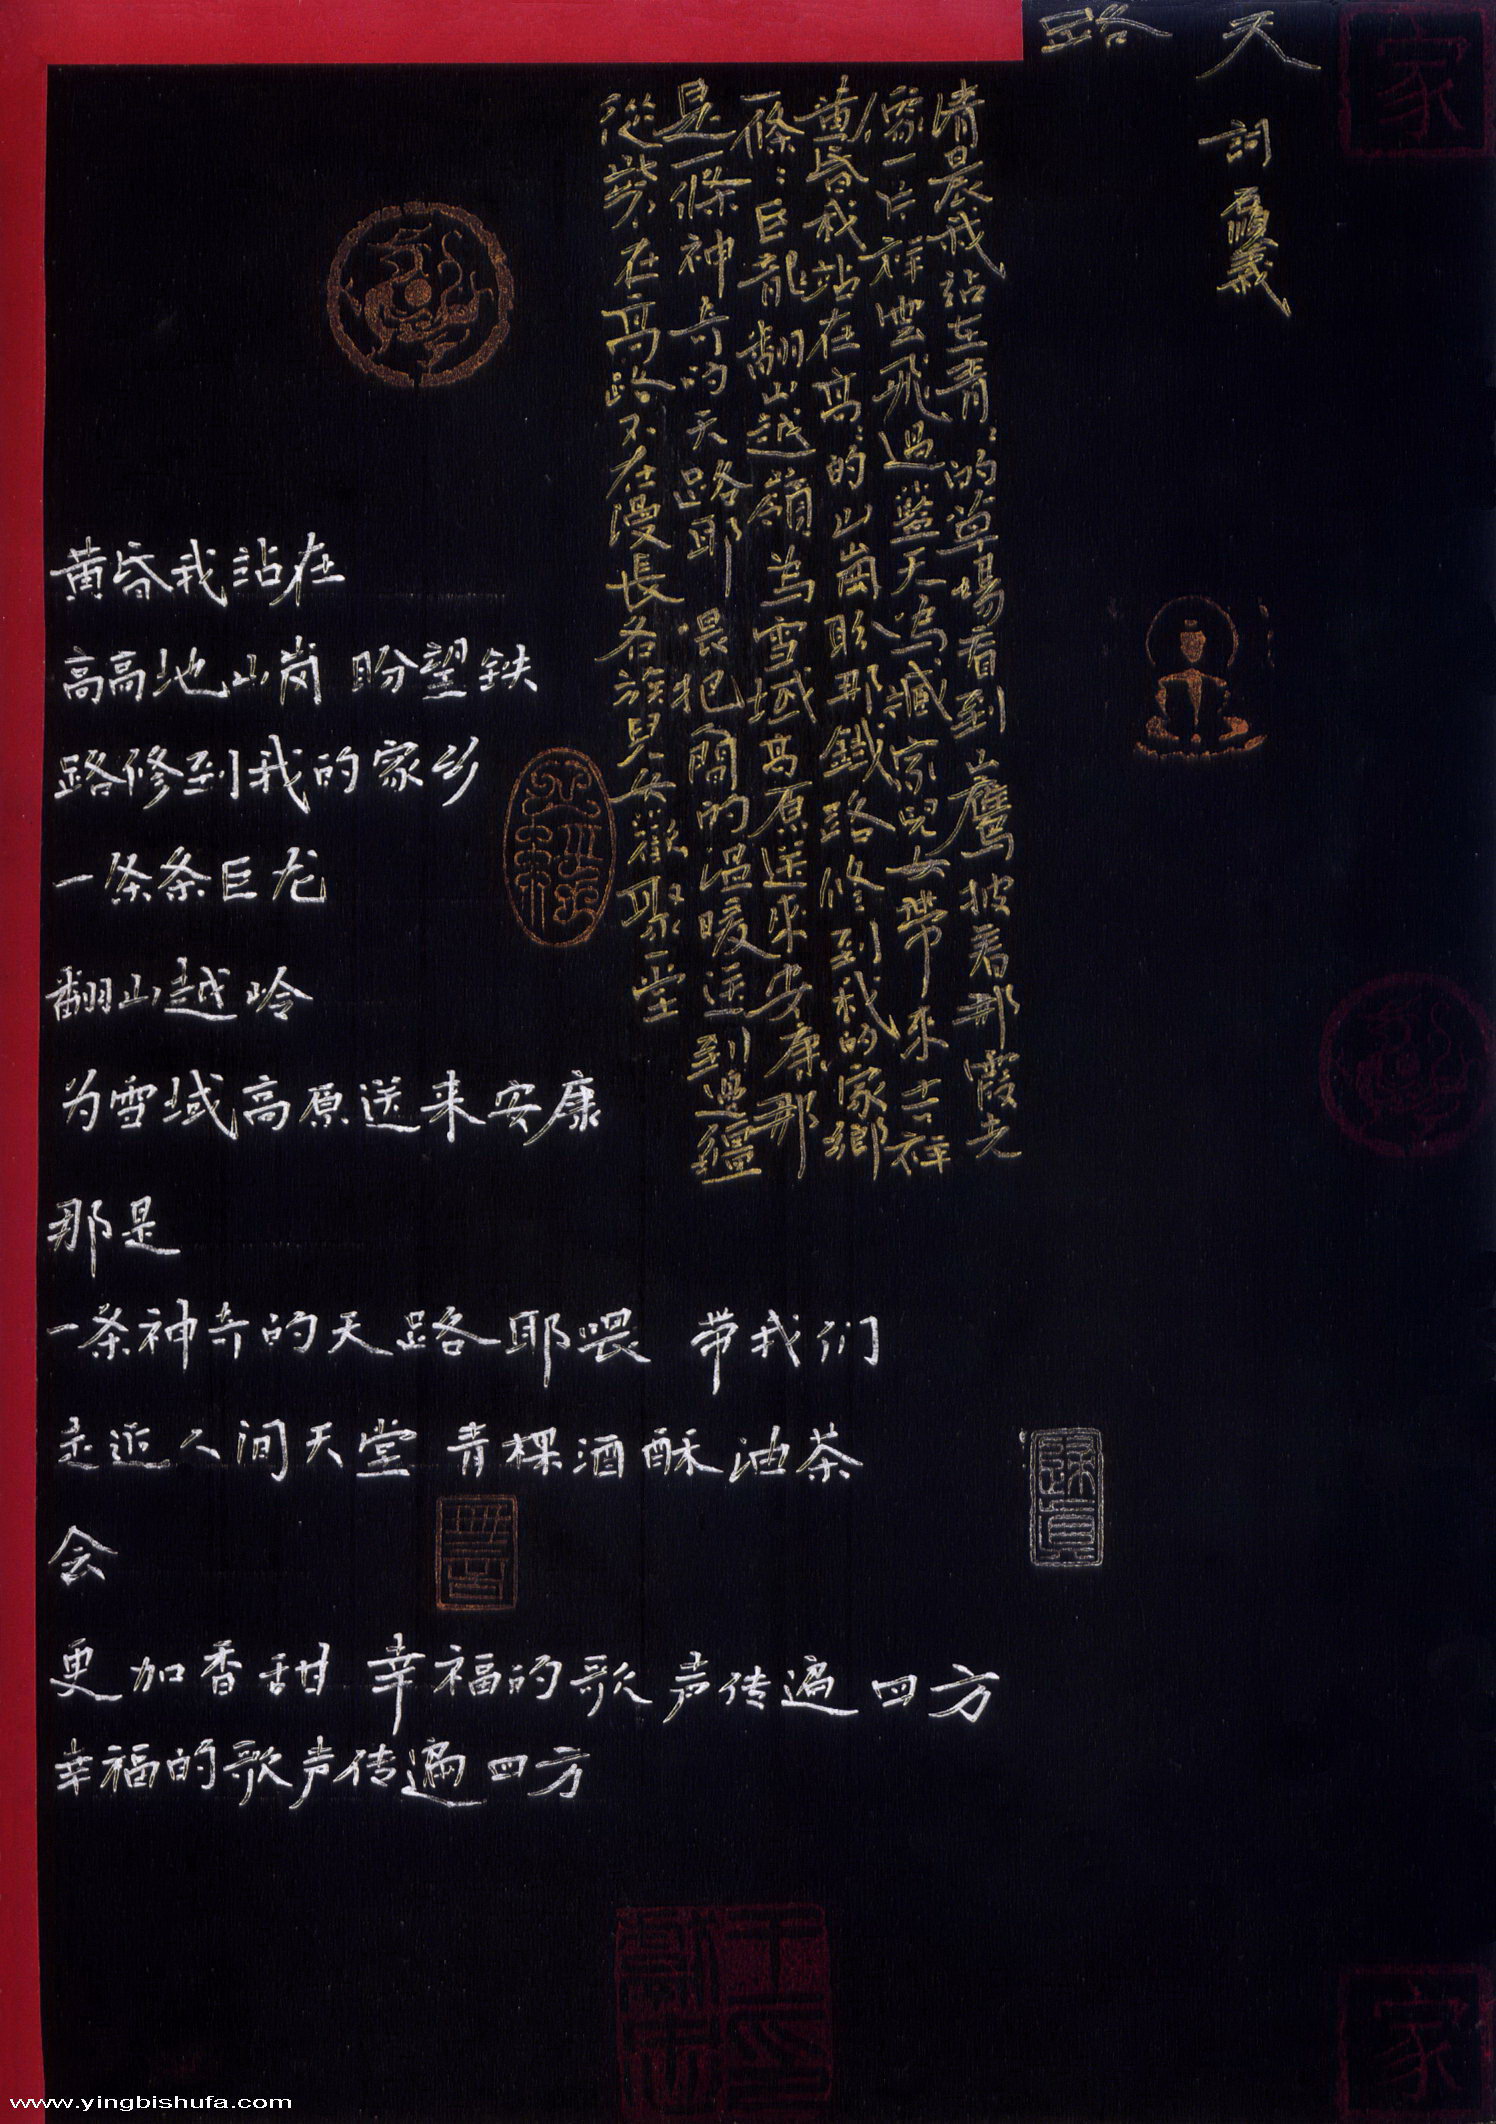 天路
詞 石順義
清晨我站在青：的草場看到山鷹披着那霞光
像一片祥雲飛過藍天為藏家兒女帶來吉祥
黄昏我站在高：的山崗盼那鐵路修到我的家鄉
一條：巨龍翻山越嶺為雪域高原送來安康那
是一條神奇的天路耶 喂把間的温暖送到邊疆
從此山不在高路不在漫長各族兒女歡聚一堂
黄昏我站在
高高地山岗 盼望铁
路修到我的家乡
一条条巨龙
翻山越岭
为雪域高原送来安康
那是
一条神奇的天路耶喂 带我们
走近人间天堂 青稞酒酥油茶
会
更加香甜 幸福的歌声传遍四方
幸福的歌声传遍四方
www.yingbishufa.com